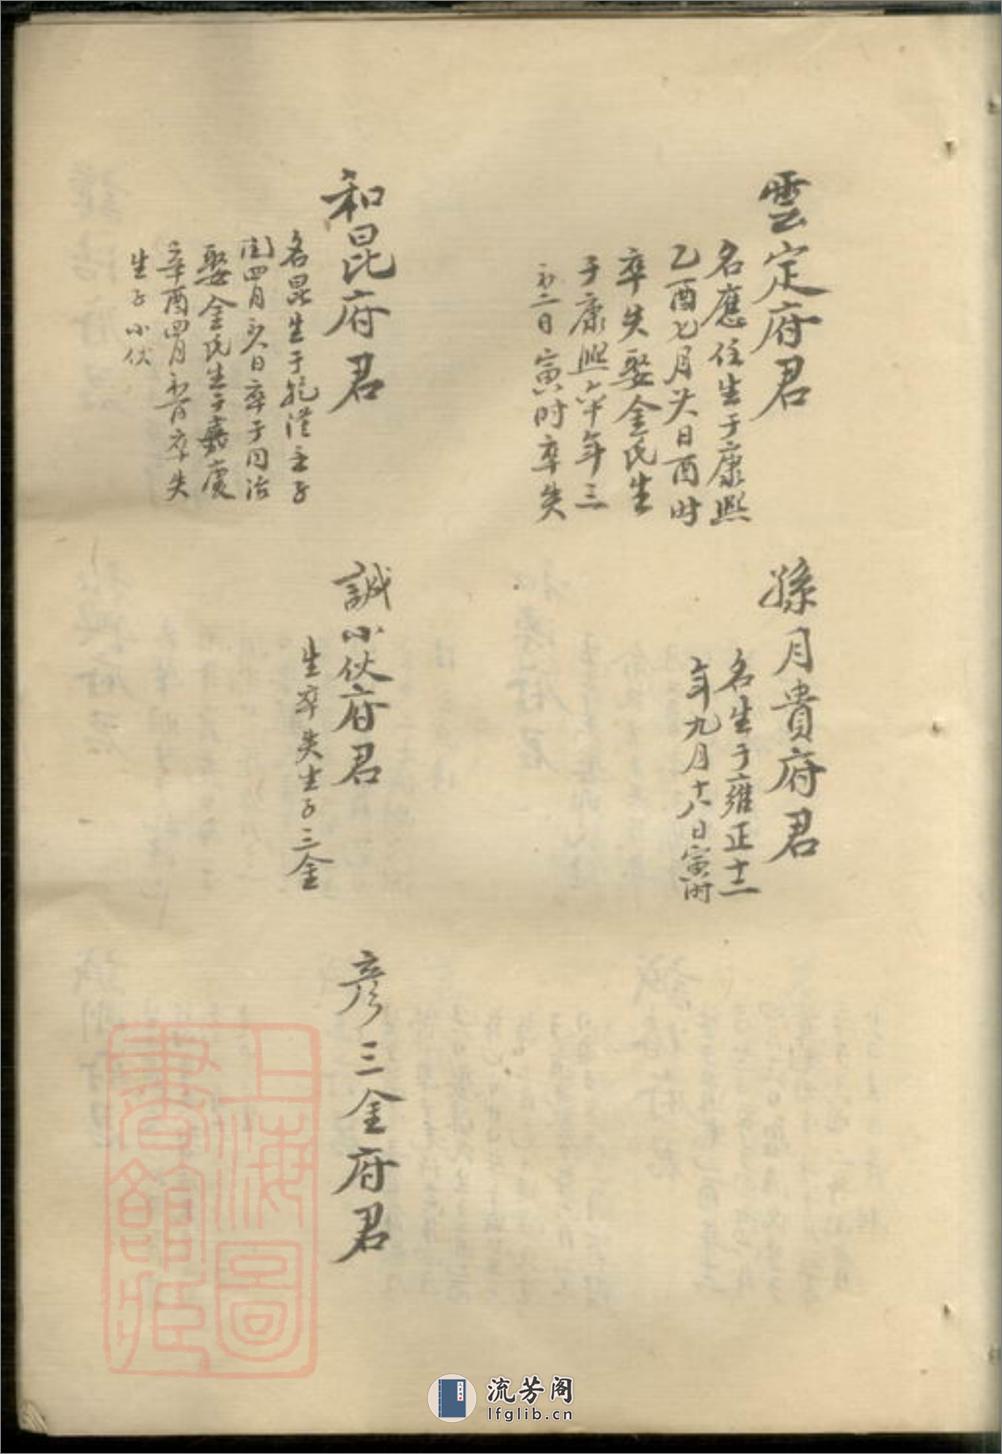 雲定府君
名應任生于康熙
乙酉七月廿八日酉时
卒失娶金氏生
于康熙六十年三
月初二日寅时卒失
孫月貴府君
名生于雍正十二
年九月十八日寅时
和昆府君
名昆生于乾隆壬子
閏四月初八日卒于同治
娶金氏生于嘉慶
辛酉四月初六日卒失
生子小伏
誠小伏府君
生卒失生子三金
彦三金府君
上海圖
書館藏
流芳阁
lfglib.cn